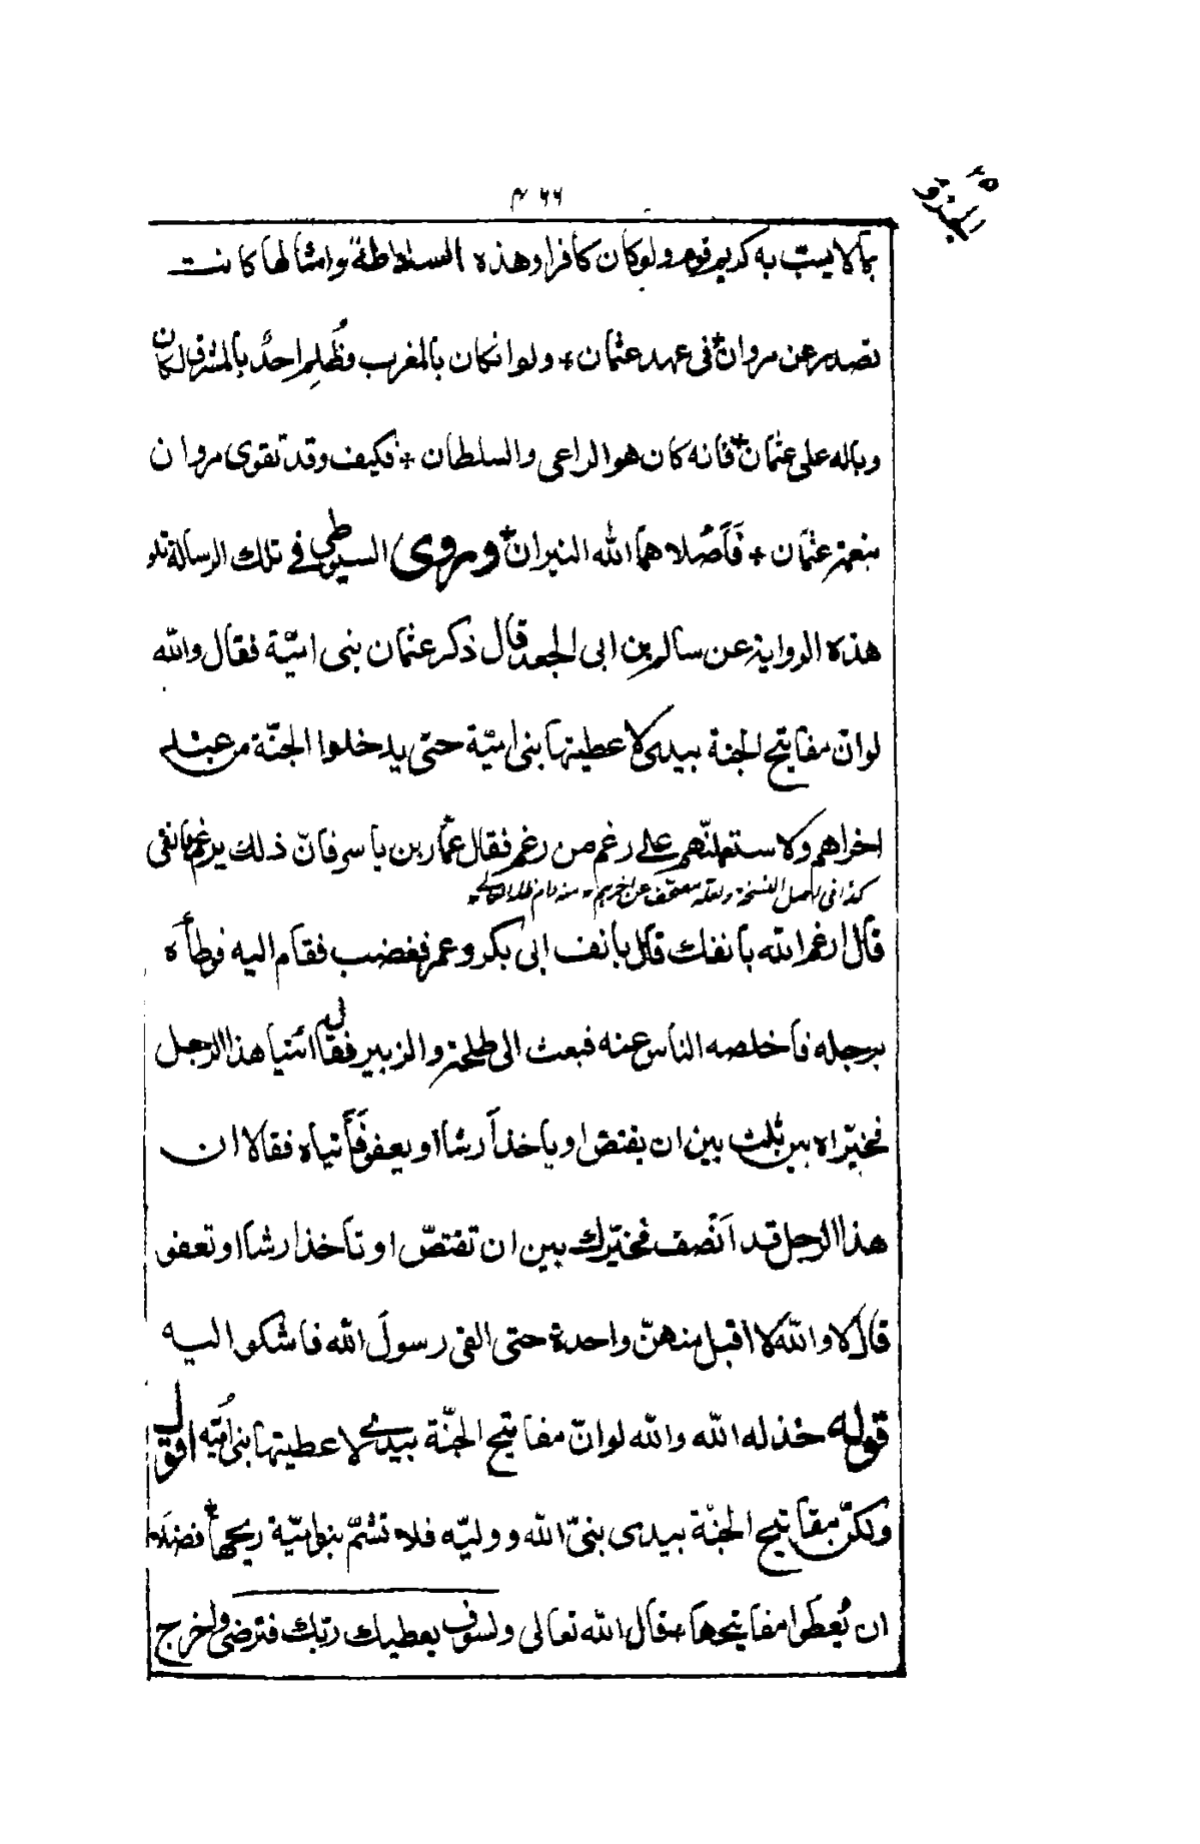 ۴۶۶
الجزو ۲۵
بمالا يسبّ به كريم قوم ولو كان كافرا وهذه السلاطة وامثالها كانت
تصدر عن مروان + فى عهد عثمان + ولو انكان بالمغرب وظُلِم احدٌ بالمشرق لكان
وباله على عثمان + فانه كان هو الراعى والسلطان + فكيف وقد تقوى مروان
بنعمة عثمان + فَاَصْلاهما الله النيران + وروى السيوطى فى تلك الرسالة تلو
هذه الرواية عن سالم بن ابى الجعد قال ذكر عثمان بنى اميّة فقال والله
لوانّ مفاتيح الجنة بيدى لاعطيتها بنى اميّة حتى يدخلوا الجنّة من عند
اخراهم ولاستعملنّهم على رغم من رغم فقال عمّار بن ياسر فانّ ذلك يرغم بانفى
كذا فى اصل النسخة ولعله مصحف عن اخريهم ـ منه دام ظله العالى ـ
قال ارغم الله بانفك قال بانف ابى بكر وعمر فغضب فقام اليه فوطأه
برجله فاخلصه الناس عنه فبعث الى طلحة والزبير فقال ائتيا هذا الرجل
فخيّراه بين ثلث بين ان يقتصّ او ياخذ اَرشا او يعفو فَأَتياه فقالا ان
هذا الرجل قد اَنْصف فخيّرك بين ان تقتصّ او تاخذ ارشا او تعفو
قال لا والله لا اقبل منهنّ واحدة حتى القى رسولَ الله فاشكوا اليه
قوله خذله الله والله لوانّ مفاتيح الجنّة بيدى لاعطيتها بنى اُميّه اقول
ولكنّ مفاتيح الجنّة بيدى نبىّ الله ووليّه فلا تشمّ بنواميّة ريحها + فضلا
ان يُعطَوا مفاتيحها + قال الله تعالى ولسوف يعطيك ربّك فترضى واخرج